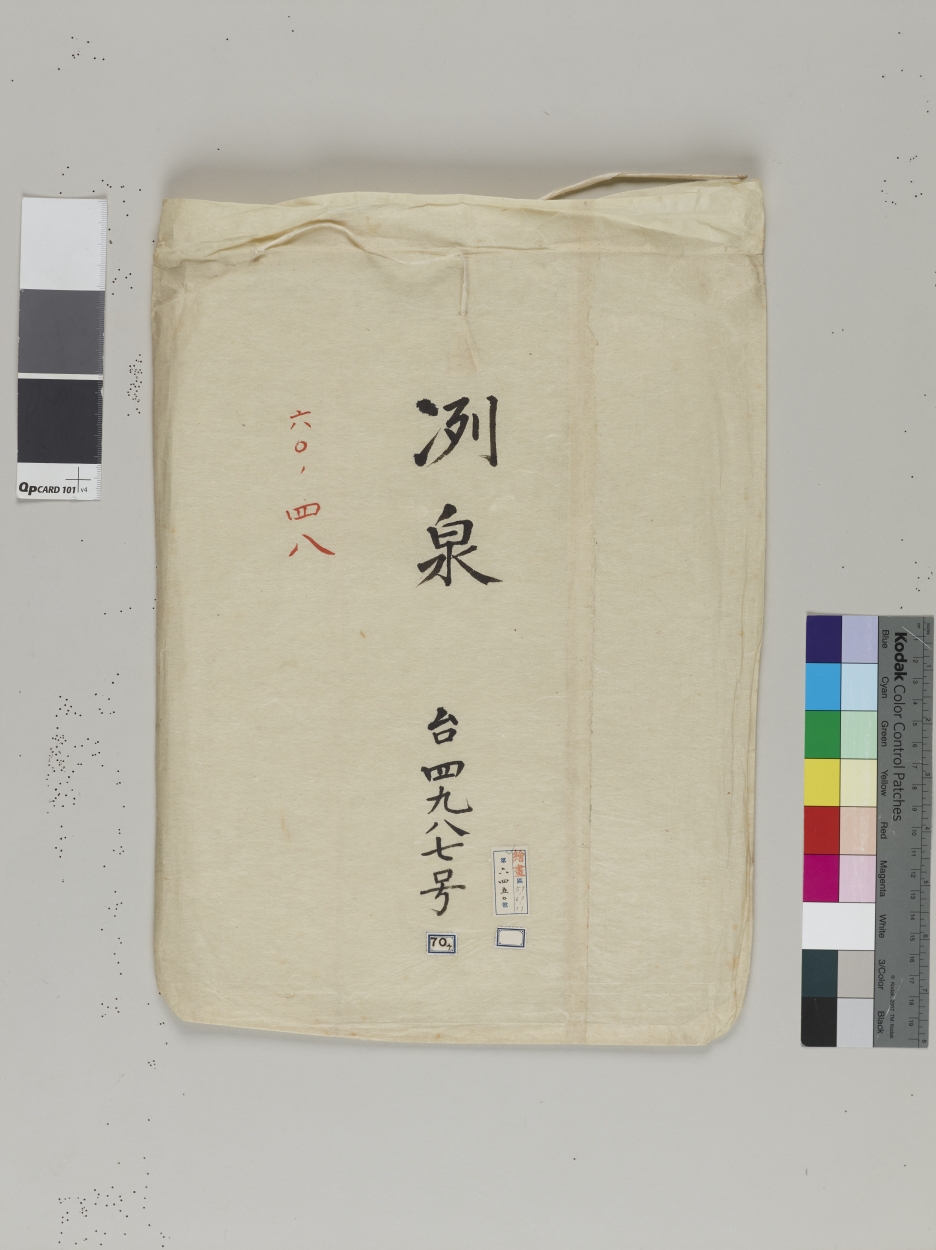 冽泉
台四九八七号
六〇、四八
繪畫
第六四五〇號
70
QPCARD 101 v4
Kodak Color Control Patches
Blue Cyan Green Yellow Red Magenta White 3/Color Black